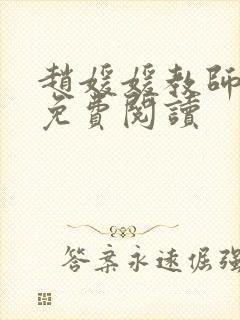 趙媛媛教師
免費閱讀
答案永遠倔強